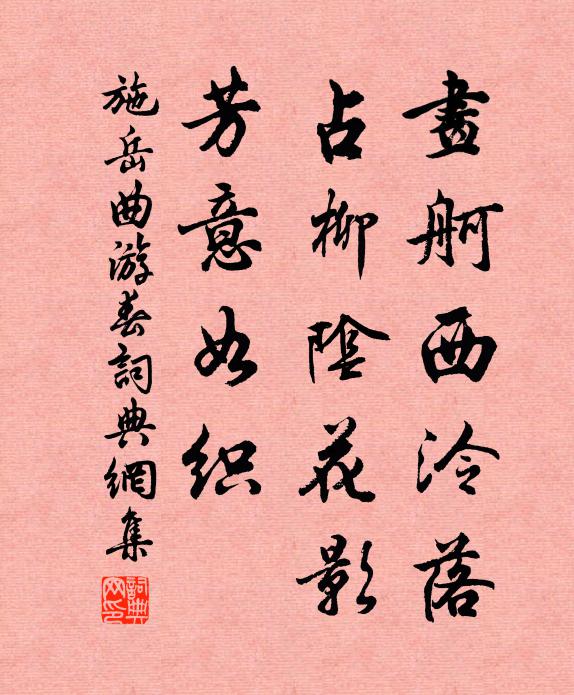 畫舸西泠落
占柳陰花影
芳意如织
施岳曲游春詞典網集
詞典
网印